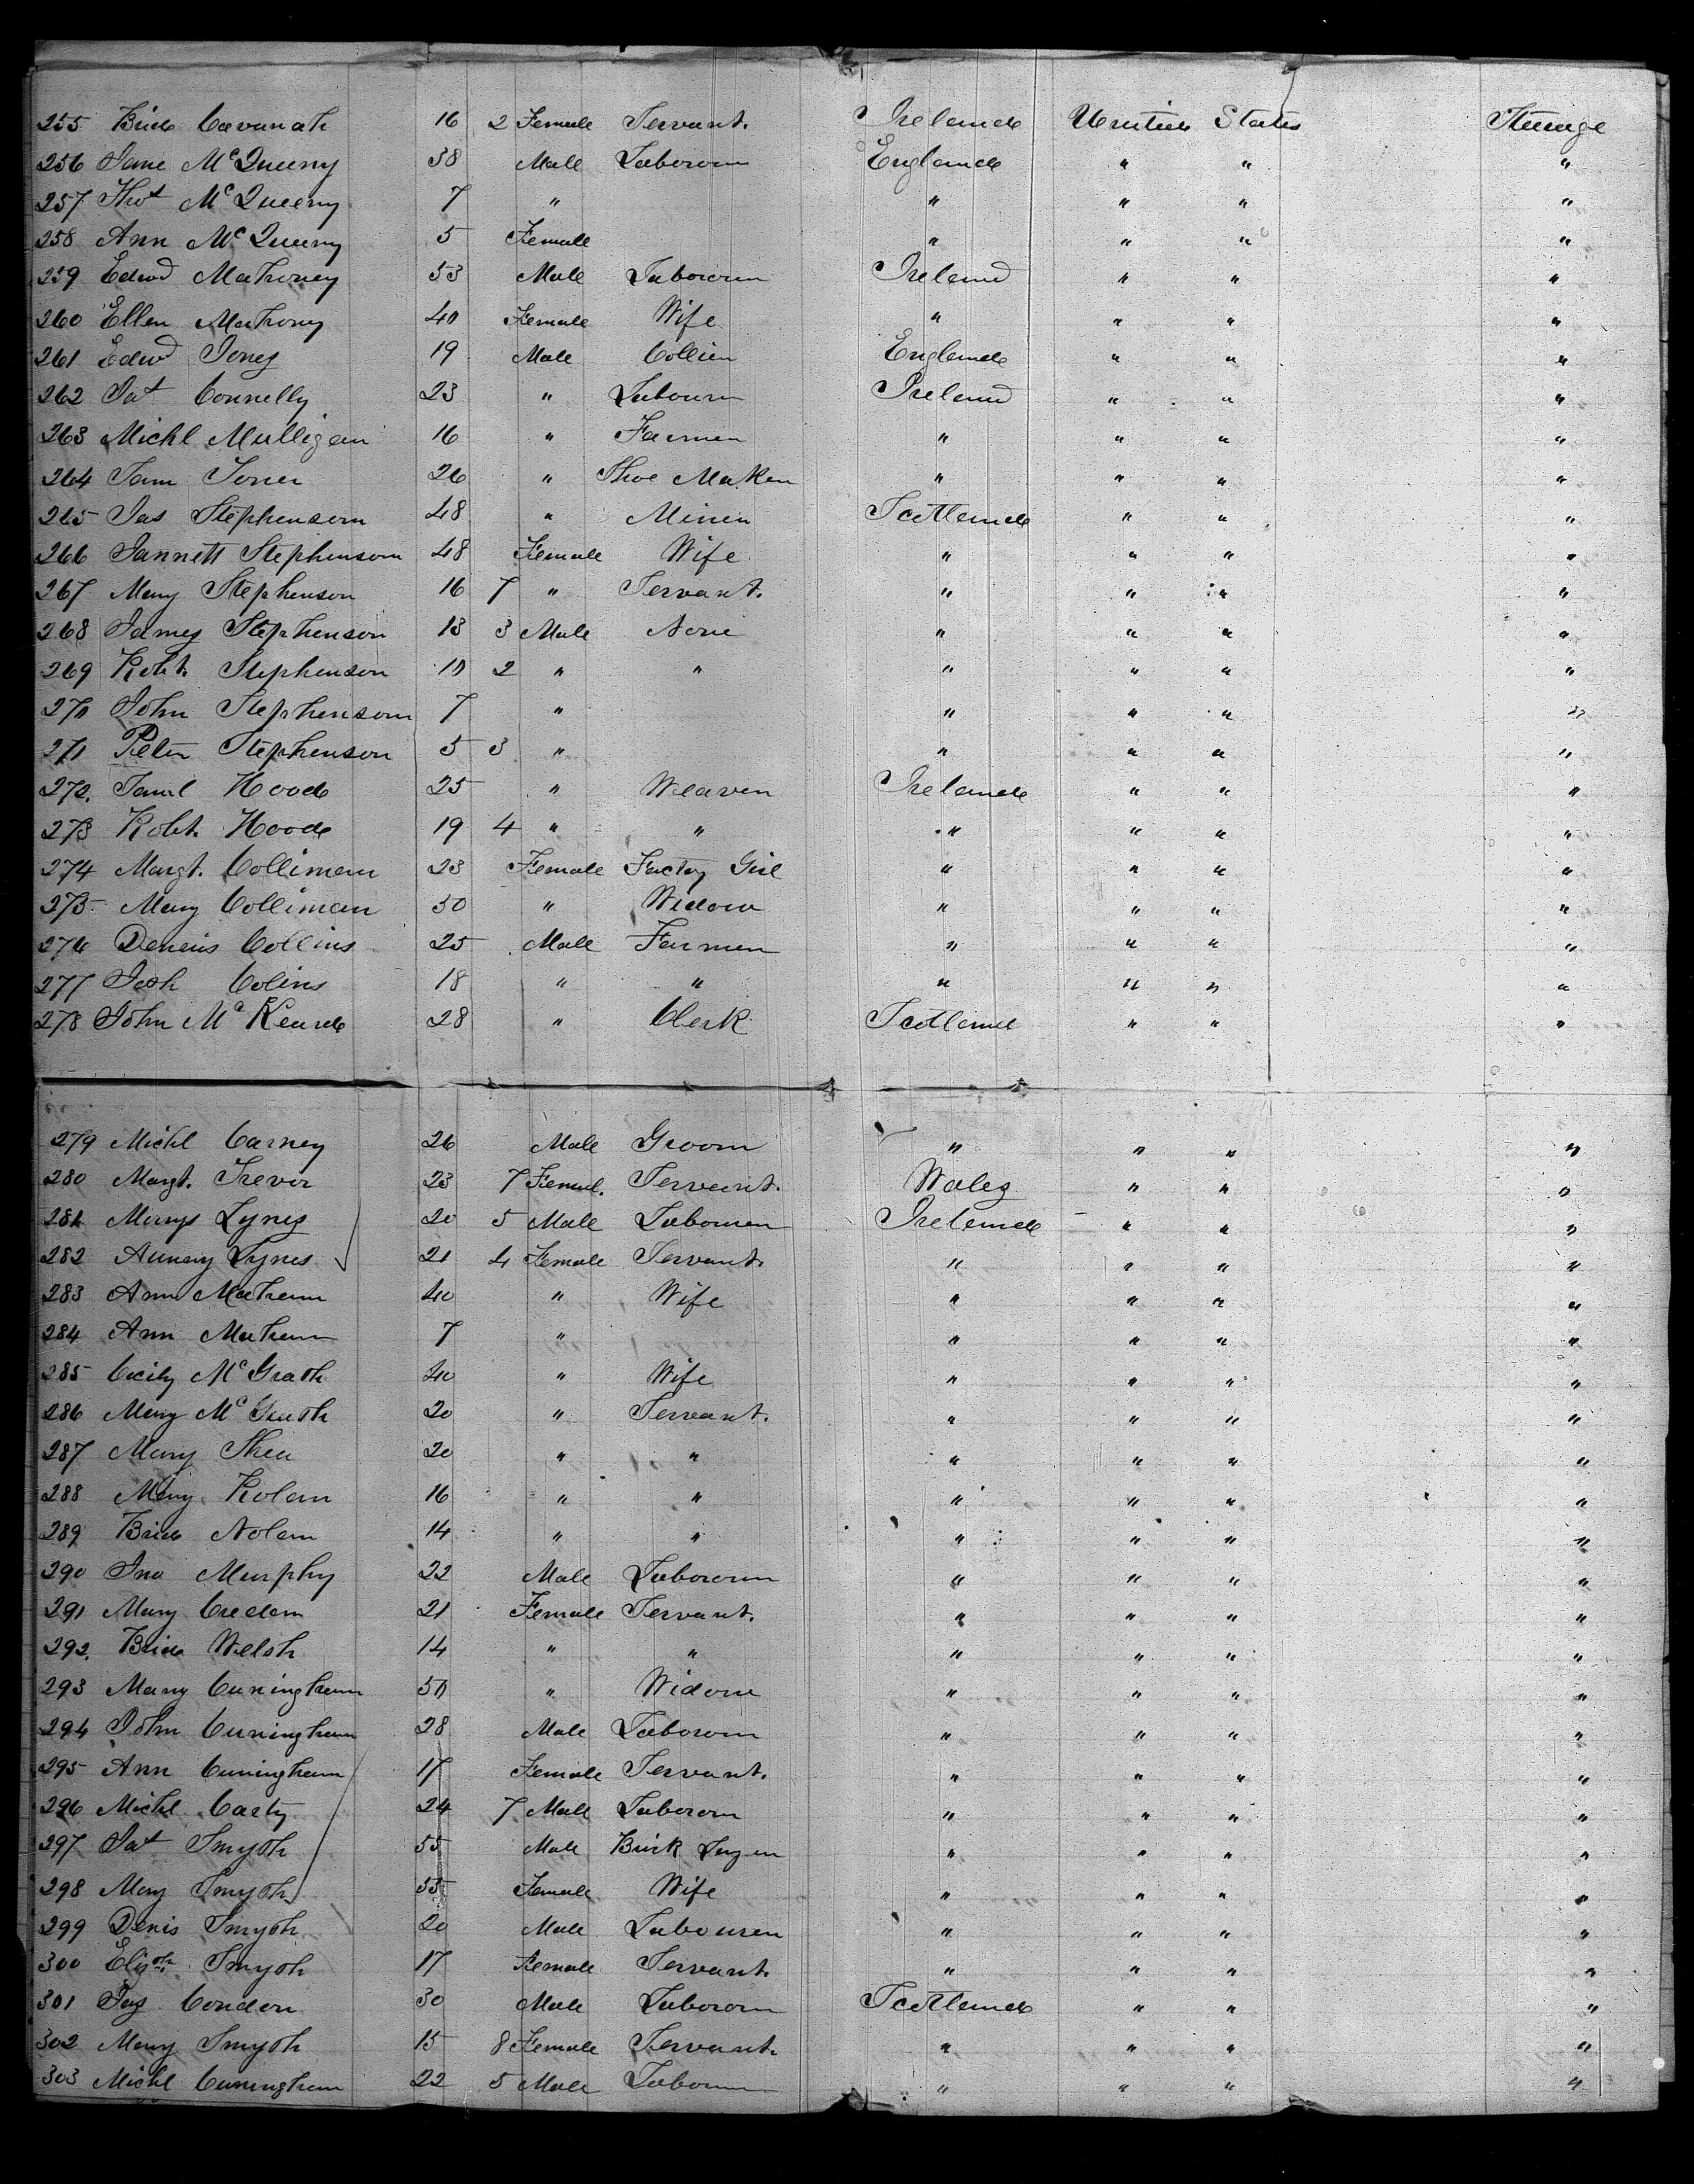 255 Brid Cavanah 16 2 Female Servant. Ireland United States Steerage
256 Jane McQueeny 38 Male Labourer England " " "
257 Thos McQueeny 7 " " " " "
258 Ann McQueeny 5 Female " " " "
259 Edwd Mahoney 53 Male Labourer Ireland " " "
260 Ellen Mahony 40 Female Wife " " " "
261 Edwd Jones 19 Male Collier England " " "
262 Pat Connelly 23 " Labourer Ireland " " "
263 Michl Mulligan 16 " Farmer " " " "
264 26 " Shoe Maker " " " "
265 Jas Stephenson 48 " Miner Scotland " " "
266 Jannett Stephenson 48 Female Wife " " " "
267 Mary Stephenson 16 7 " Servant. " " " "
268 James Stephenson 13 3 Male None " " " "
269 Robt. Stephenson 10 2 " " " " " "
270 John Stephenson 7 " " " " "
271 Peter Stephenson 5 3 " " " " "
272. Saml Hood 25 " Weaver Ireland " " "
273 Robt. Hood 19 4 " " " " " "
274 Margt. Colliman 23 Female Factory Girl " " " "
275 Mary Colliman 50 " Widow " " " "
276 Dennis Collins 25 Male Farmer " " " "
277 Colins 18 " " " " " "
278 John Mc 28 " Clerk Scotland " " "
279 Michl Carney 26 Male Groom " " " "
280 Margt. Trevor 23 7 Femal. Servant. Wales " " "
281 Lynes 20 5 Male Labourer Ireland " " "
282 Lynes 21 4 Female Servant. " " " "
283 Ann 40 " Wife " " " "
284 Ann 7 " " " " "
285 Cecily McGrath 40 " Wife " " " "
286 Mary McGrath 20 " Servant. " " " "
287 Mary Shea 20 " " " " " "
288 Mary Kolan 16 " " " " " "
289 Brid Nolan 14 " " " " " "
290 Jno Murphy 22 Male Labourer " " " "
291 Mary Credan 21 Female Servant. " " " "
292. Brid Welsh 14 " " " " " "
293 Mary Cuningham 50 " Widow " " " "
294 John Cuningham 28 Male Labourer " " " "
295 Ann Cuningham 17 Female Servant. " " " "
296 Michl Carty 24 7 Male Labourer " " " "
297 Pat Smyth 55 Male Brick Layer " " " "
298 Mary Smyth 55 Female Wife " " " "
299 Denis Smyth 20 Male Labourer " " " "
300 Elizth. Smyth 17 Female Servant. " " " "
301 Jas Condon 30 Male Labourer Scotland " " "
302 Mary Smyth 15 8 Female Servant. " " " "
303 Michl Cuningham 22 5 Male Labourer " " " "